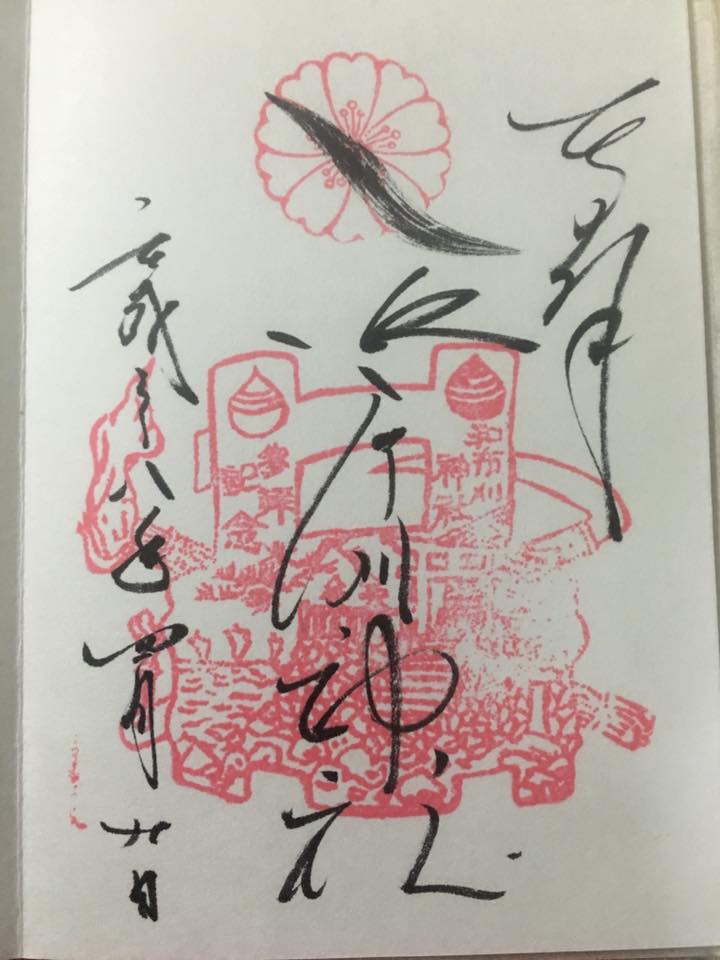 奉拝
和布刈神社
平成二十八年四月廿日
和布刈神社
参拝記念